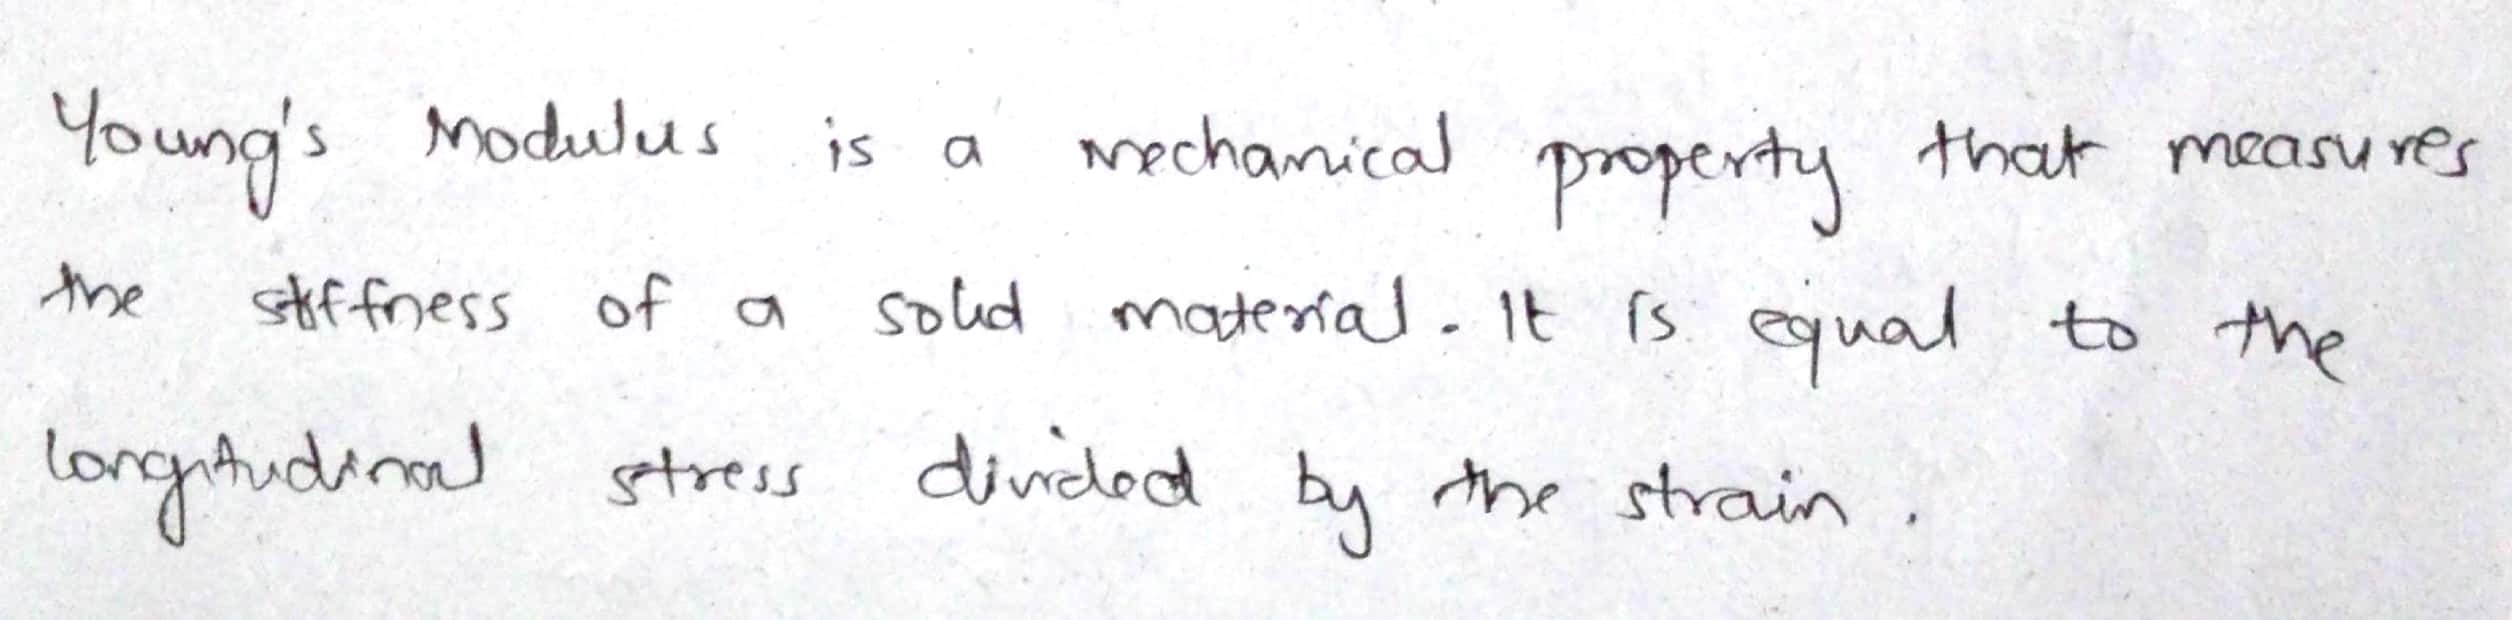 Young's Modulus is a mechanical property that measures
the stiffness of a solid material. It is equal to the
longitudinal stress divided by the strain.